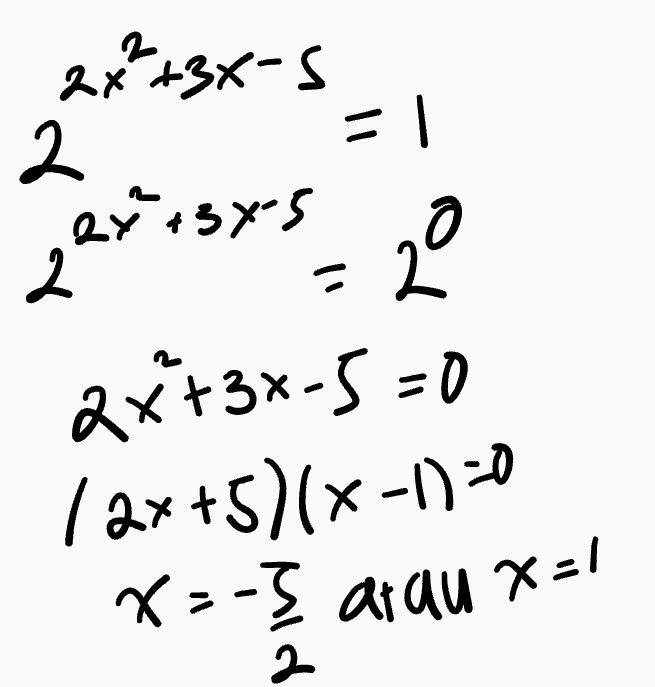 2^{2x^2+3x-5} = 1
2^{2x^2+3x-5} = 2^0
2x^2+3x-5=0
(2x+5)(x-1)=0
x = -5/2 atau x=1